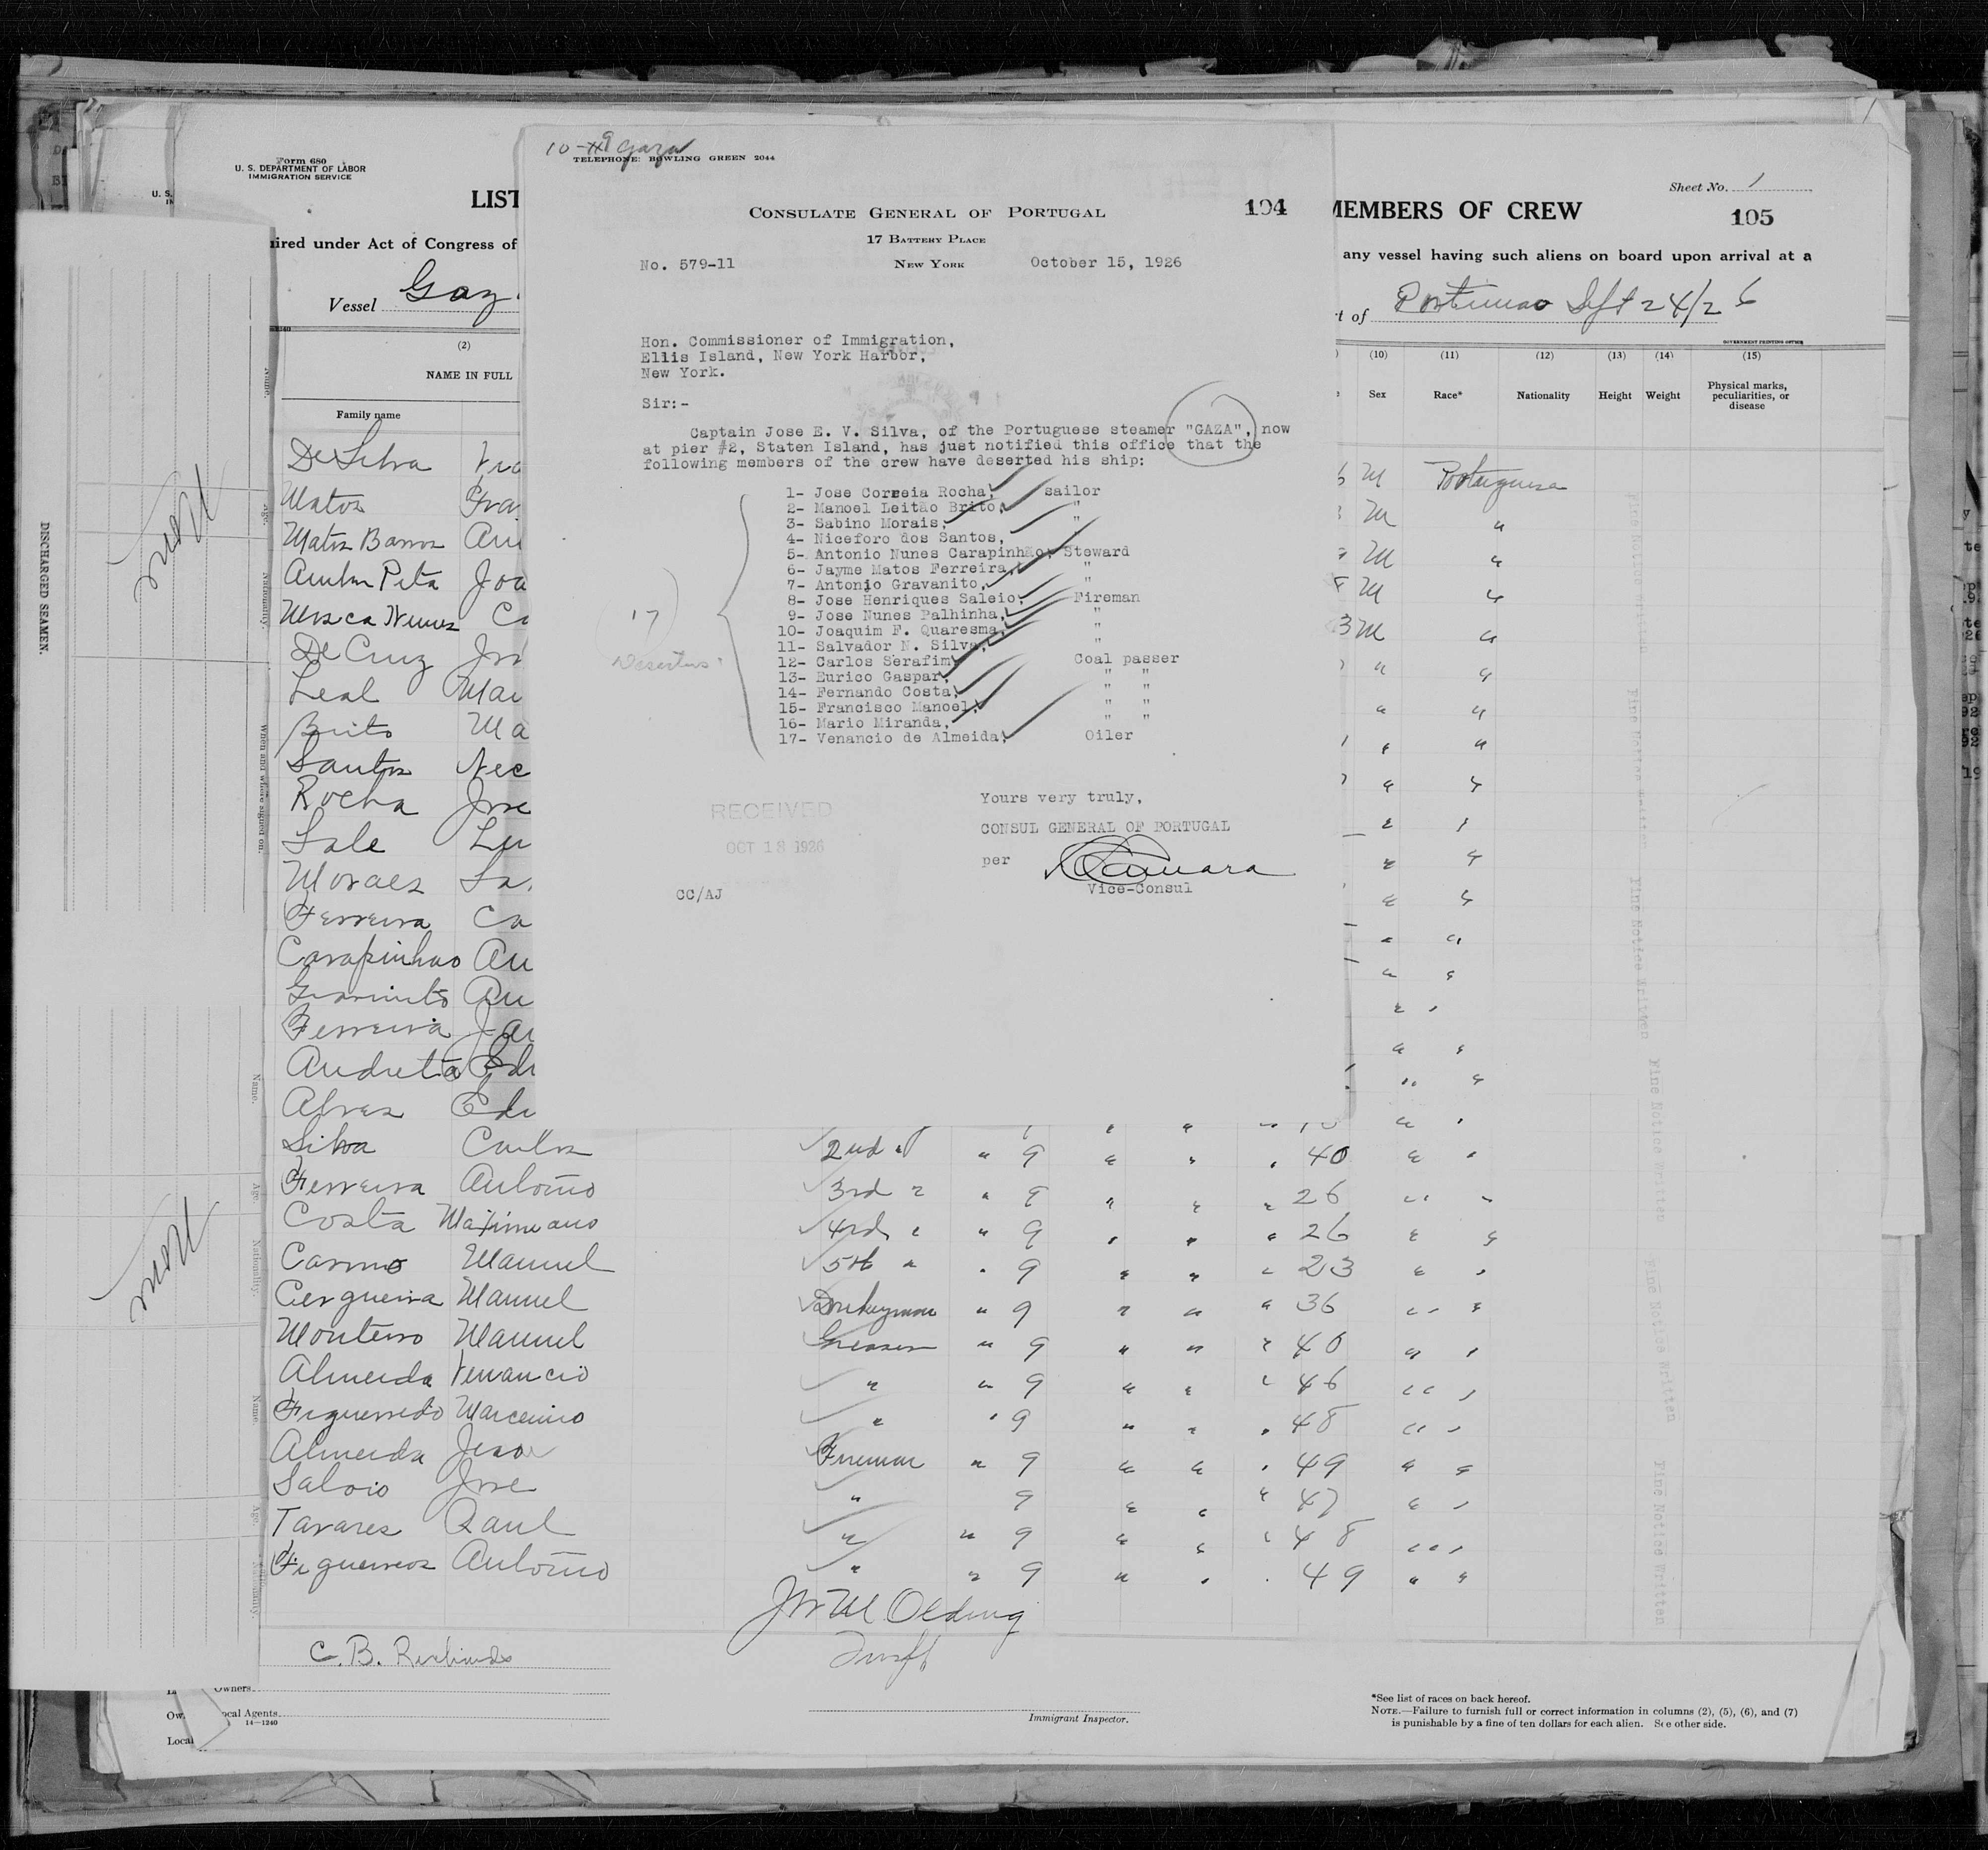 Form 680
U. S. DEPARTMENT OF LABOR
IMMIGRATION SERVICE
LIST
MEMBERS OF CREW
Sheet No. 1
105
ired under Act of Congress of
any vessel having such aliens on board upon arrival at a
Vessel Gaz
t of Portimao Sept 24/26
GOVERNMENT PRINTING OFFICE
(2)
NAME IN FULL
Family name
(10) (11) (12) (13) (14) (15)
Sex Race* Nationality Height Weight Physical marks,
peculiarities, or
disease
10-9 Gaza
TELEPHONE: BOWLING GREEN 2044
CONSULATE GENERAL OF PORTUGAL
104
17 BATTERY PLACE
No. 579-11 NEW YORK October 15, 1926
Hon. Commissioner of Immigration,
Ellis Island, New York Harbor,
New York.
Sir:-
Captain Jose E. V. Silva, of the Portuguese steamer "GAZA", now
at pier #2, Staten Island, has just notified this office that the
following members of the crew have deserted his ship:
1- Jose Correia Rocha, sailor
2- Manoel Leitão Brito, "
3- Sabino Morais, "
4- Niceforo dos Santos,
5- Antonio Nunes Carapinhão, Steward
6- Jayme Matos Ferreira, "
7- Antonio Gravanito, "
8- Jose Henriques Saleio, Fireman
9- Jose Nunes Palhinha, "
10- Joaquim F. Quaresma, "
11- Salvador N. Silva, "
12- Carlos Serafim, Coal passer
13- Eurico Gaspar, " "
14- Fernando Costa, " "
15- Francisco Manoel, " "
16- Mario Miranda, " "
17- Venancio de Almeida, Oiler
17
Deserters
Yours very truly,
CONSUL GENERAL OF PORTUGAL
per Camara
Vice-Consul
RECEIVED
OCT 18 1926
CC/AJ
De Silva
Matos
Matos Barros
Pita Joa
Nunes
De Cruz
Leal Mar
Brito Ma
Santos
Rocha Jose
Sale Lu
Moraes Sa
Ferreira Ca
Carapinhao An
An
Ferreira Jai
Edu
Alves Edu
M Portuguese
M "
M "
M "
M "
Silva Carlos 2nd " " 9 " " " 40 " "
Ferreira Antonio 3rd " " 9 " " " 26 " "
Costa Maximeano 4rd " " 9 " " " 26 " "
Carmo Manuel 5th " " 9 " " " 23 " "
Cerqueira Manuel Donkeyman " 9 " " " 36 " "
Monteiro Manuel Greaser " 9 " " " 40 " "
Almeida Venancio " " 9 " " " 46 " "
Figueiredo Marcenino " " 9 " " " 48 " "
Almeida Fireman " 9 " " " 49 " "
Saloio Jose " 9 " " " 47 " "
Tavares Raul " " 9 " " " 48 " "
Antonio " " 9 " " " 49 " "
C. B. Richards
Owners
Local Agents
14—1240
Immigrant Inspector.
*See list of races on back hereof.
NOTE.—Failure to furnish full or correct information in columns (2), (5), (6), and (7)
is punishable by a fine of ten dollars for each alien. See other side.
DISCHARGED SEAMEN.
Name.
Age.
Nationality.
When and where signed on.
Name.
Age.
Nationality.
Name.
Age.
Fine Notice Written
Fine Notice Written
Fine Notice Written
Fine Notice Written
Fine Notice Written